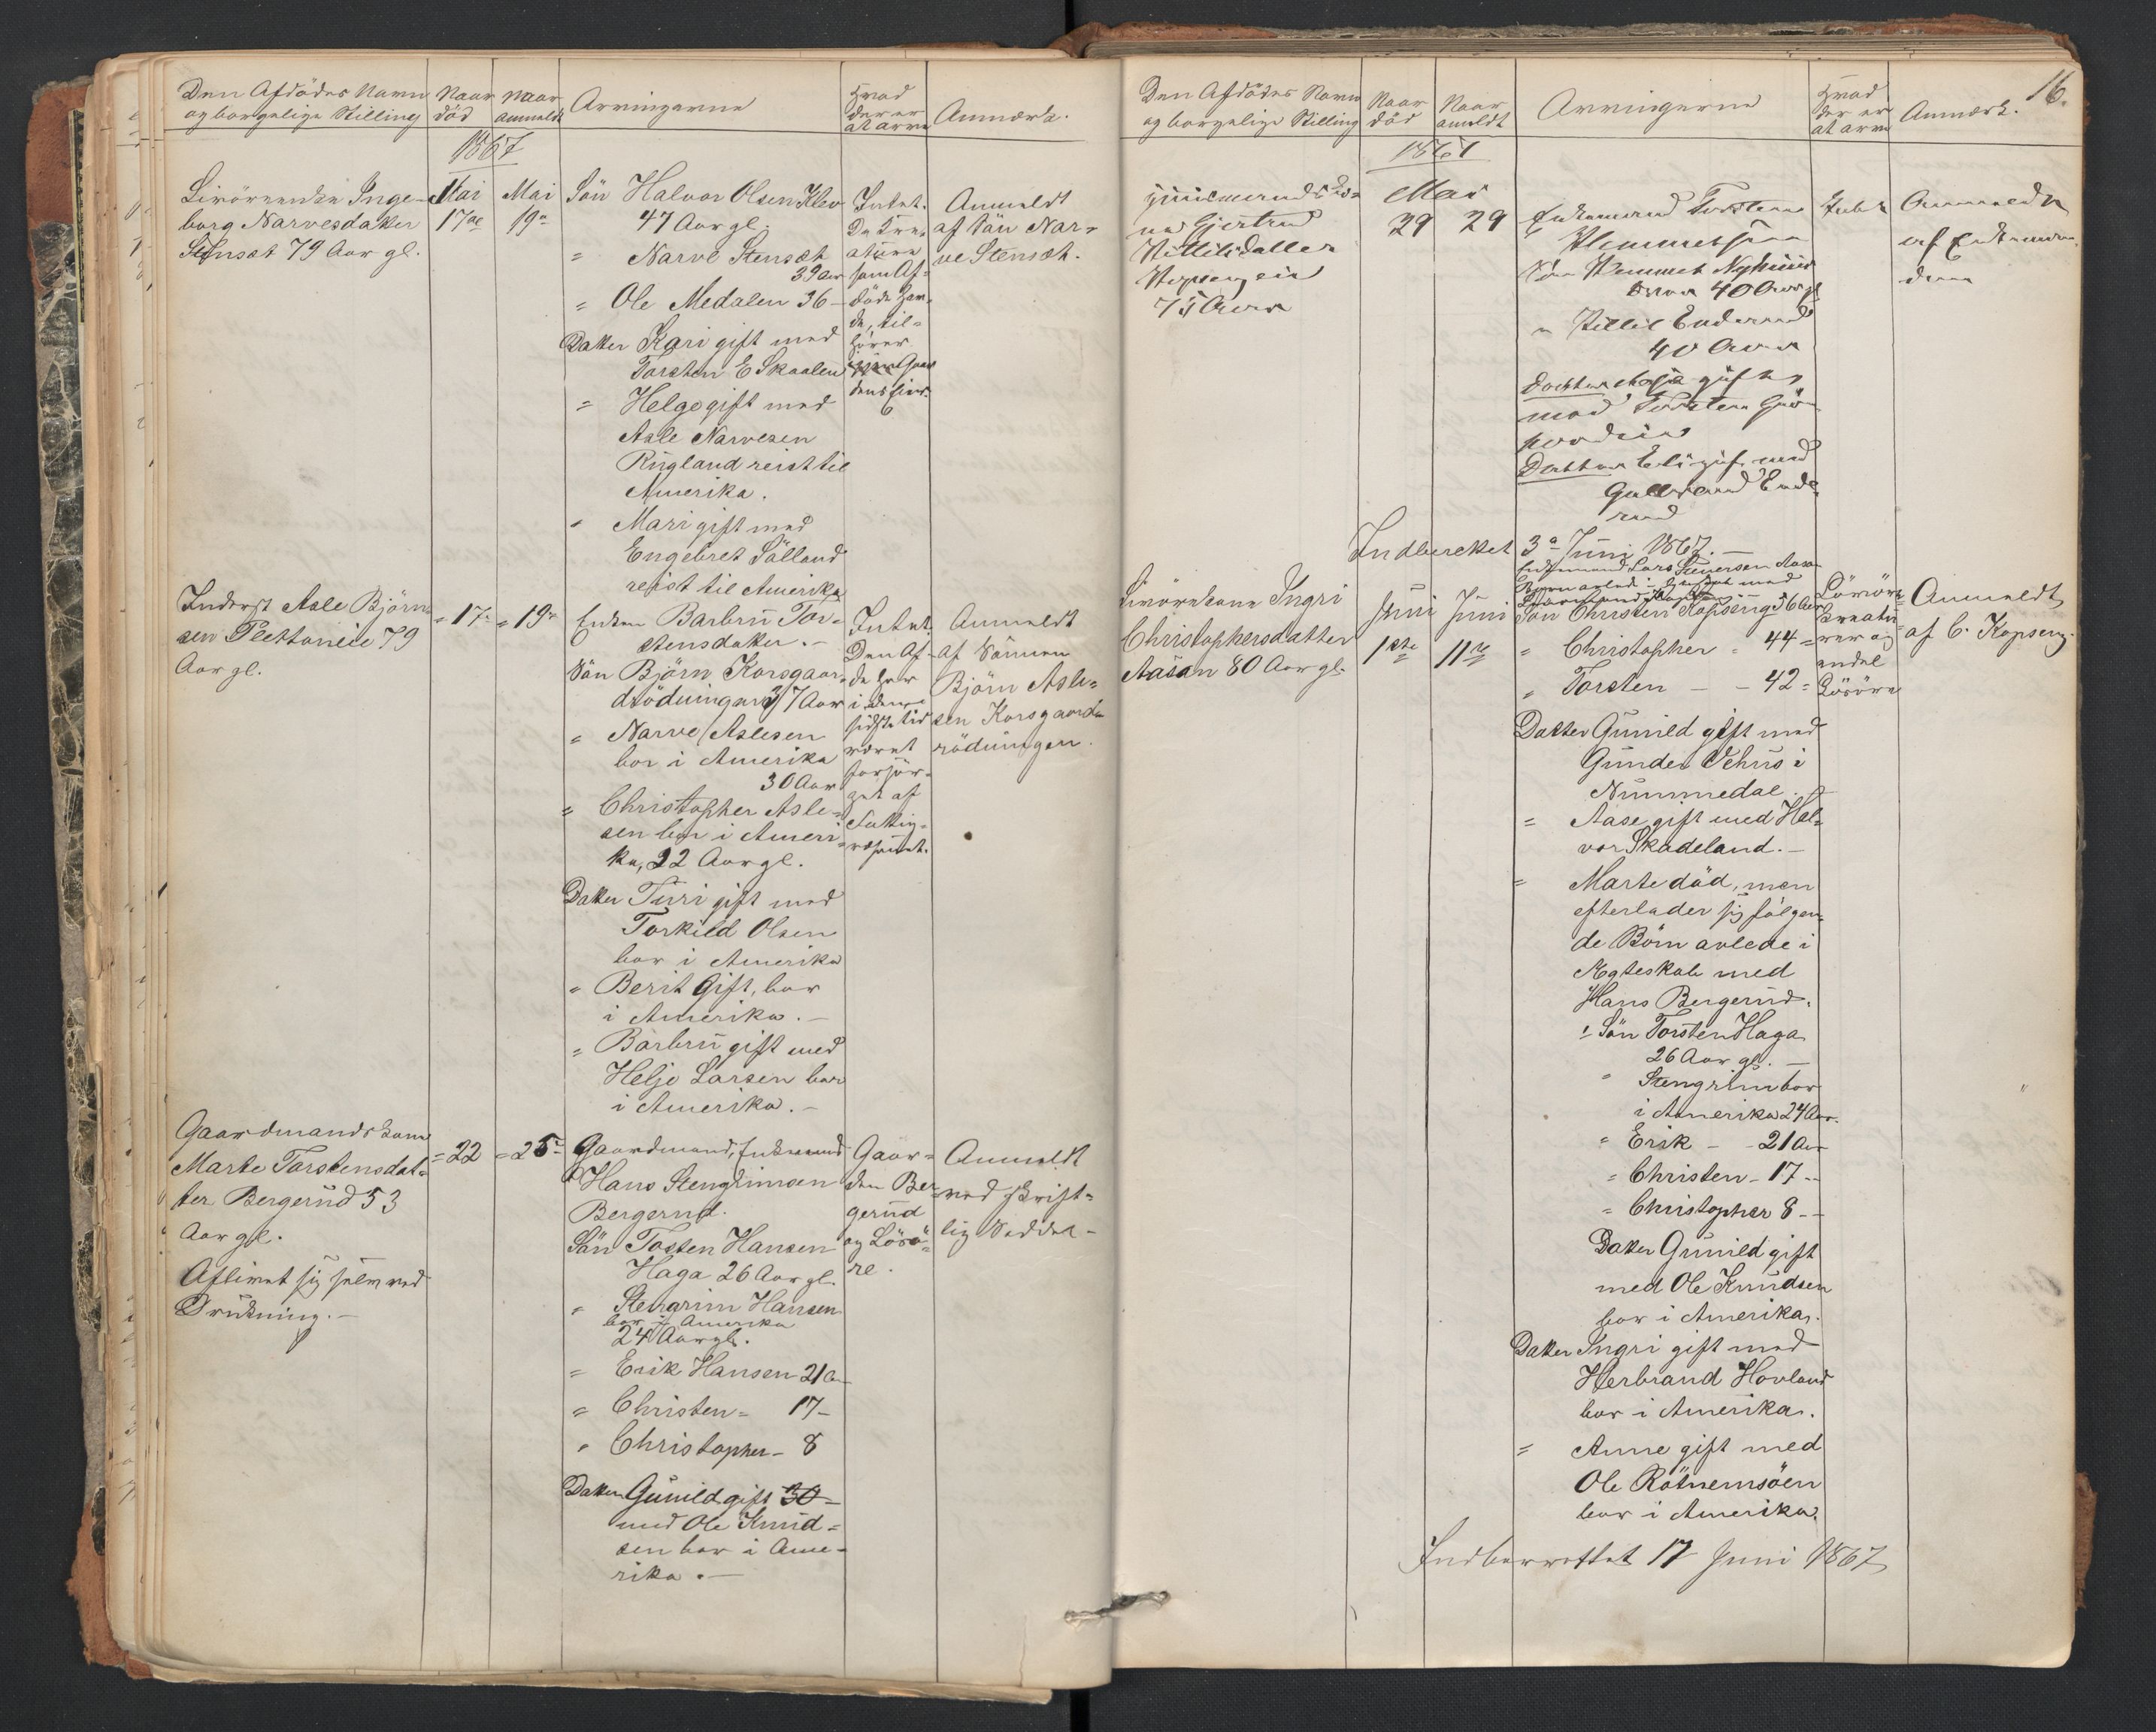 Den Afdödes Navn
og borgelige Stilling
Naar
död
Naar
anmeldt
Arvingerne
Hvad
der er
at arve
Anmærk.
1867
Livörenken Inge-
borg Narvesdatter
Stensæt 79 Aar gl.
Mai
17de
Mai
19de
Sön Halvor Olsen Klev
47 Aar gl.
" Narve Stensæt
39 Aar
" Ole Medalen 36 -
Datter Kari gift med
Torsten E Skaalen
" Helge gift med
Asle Narvesen
Rugland reist til
Amerika.
" Mari gift med
Engebret Sölland
reist til Amerika
Intet.
De Kre-
aturer
som Af-
döde hav-
de, til-
hörer
Gaar-
dens Eier.
Anmeldt
af Sön Nar-
ve Stensæt.
Inderst Asle Björn-
sen Plettoneie 79
Aar gl.
" 17-
" 19-
Enken Barbru Tor-
stensdatter. -
Sön Björn Korsgaar-
dsödningen 37 Aar
" Narve Aslesen
bor i Amerika
30 Aar
" Christopher Asle-
sen bor i Ameri-
ka, 22 Aar gl.
Datter Turi gift med
Torkild Olsen
bor i Amerika
" Berit Gift, bor
i Amerika. -
" Barbru gift med
Helje Larsen bor
i Amerika. -
Intet.
Den Af-
de har
i den
sidste tid
været
forsör-
get af
Fattig-
væsenet.
Anmeldt
af Sönnen
Björn Asle-
sen Korsgaards-
rödningen.
Gaardmandskone
Marte Torstensdat-
ter Bergerud 53
Aar gl.
Aflivet sig selv ved
Drukning. -
= 22
= 25-
Gaardmand, Enkemand
Hans Stengrimsen
Bergerud.
Sön Tosten Hansen
Haga 26 Aar gl.
" Stengrim Hansen
bor i Amerika
24 Aar gl.
= Erik Hansen 21 Aar
= Christen = 17 -
" Christopher - 8
Datter Gunild gift 30 -
med Ole Knud-
sen bor i Ame-
rika. -
Gaar-
den Ber-
gerud
og Lösö-
re.
Anmeldt
ved skrift-
lig Seddel -
16.
Den Afdödes Navn
og borgelige Stilling
Naar
död
Naar
anmeldt
Arvingerne
Hvad
der er
at arve
Anmærk.
1867
Gjertrud
Killilsdatter
75 Aar
Mai
29
29
Enkemand Torsten
Hemmetsen
Sön Hemmet Nyhuus
40 Aar gl
" Killil Enderud
40 Aar
Datter gift
med Torsten
Datter Eli gift med
Gulbrand Ende-
rud
Intet
Anmeldt
af Enkeman-
den
Indberettet 3die Juni 1867. -
Livörskone Ingri
Christophersdatter
Aasan 80 Aar gl.
Juni
1ste
Juni
11te
Enkemand Lars Steuersen Aasan
Sön Christen Kopseng 56 Aar
" Christopher = 44 =
" Torsten - - 42 =
Datter Gunild gift med
Gunder Vehus i
Nummedal. -
= Aase gift med Hal-
vor Skadeland. -
= Marte död, men
efterlader sig fölgen-
de Börn avlede i
Ægteskab med
Hans Bergerud.
: Sön Torsten Haga
26 Aar gl. -
" Stengrim bor
i Amerika 24 Aar.
" Erik - - 21 Aar
= Christen - 17 - -
= Christopher 8 - -
Datter Gunild gift
med Ole Knudsen
bor i Amerika.
Datter Ingri gift med
Herbrand Hovland
bor i Amerika.
= Anne gift med
Ole Rötnemsöen
bor i Amerika.
Lösöre
Kreatu-
rer og
andet
Lösöre
Anmeldt
af C. Kopseng.
Indberettet 17 Juni 1867